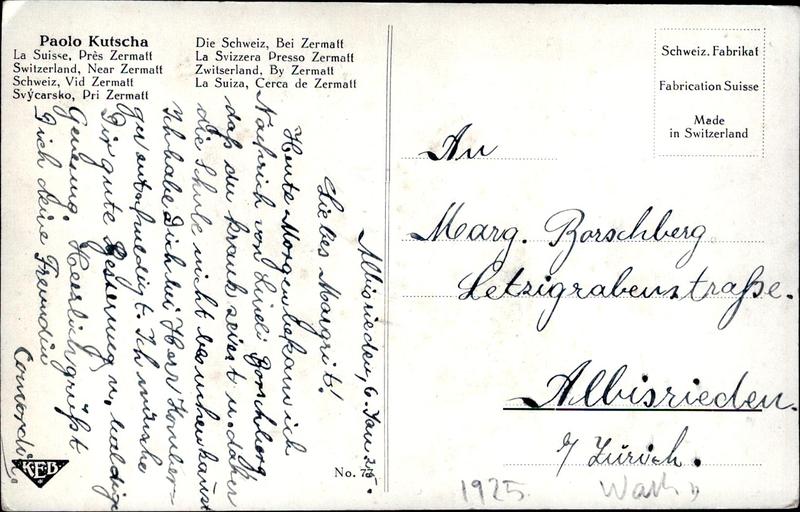 Paolo Kutscha
La Suisse, Près Zermatt
Switzerland, Near Zermatt
Schweiz, Vid Zermatt
Svýcarsko, Pri Zermatt
Die Schweiz, Bei Zermatt
La Svizzera Presso Zermatt
Zwitserland, By Zermatt
La Suiza, Cerca de Zermatt
Albisrieden, 6. Jan. 25.
Liebes Margrit!
Heute Morgen bekam ich
Nachricht von Lindi Borschberg
daß du krank seiest u. daher
die Schule nicht besuchen kannst
Ich habe Dich bei Herr
gut entschuldigt. Ich wünsche
Dir gute Besserung u. baldige
Genesung. Herzlich grüßt
Dich deine Freundin
KEB
No. 75
Schweiz. Fabrikat
Fabrication Suisse
Made
in Switzerland
An
Marg. Borschberg
Letzigrabenstraße.
Albisrieden.
b/ Zürich.
1925